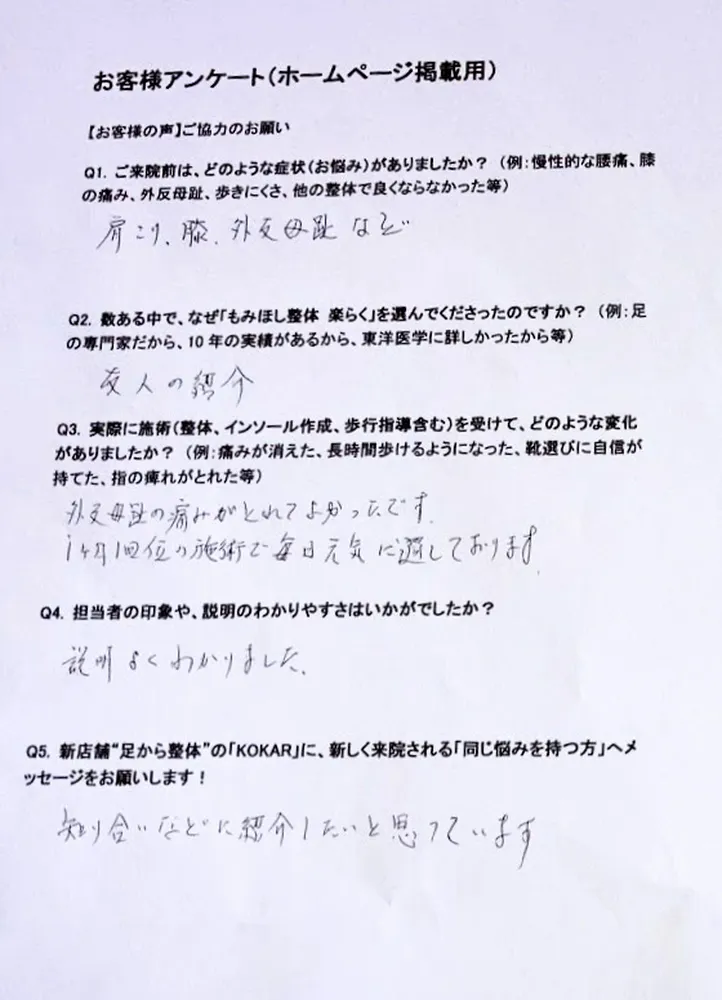 お客様アンケート(ホームページ掲載用)
【お客様の声】ご協力のお願い
Q1. ご来院前は、どのような症状(お悩み)がありましたか? (例:慢性的な腰痛、膝
の痛み、外反母趾、歩きにくさ、他の整体で良くならなかった等)
肩こり、膝、外反母趾など
Q2. 数ある中で、なぜ「もみほし整体 楽らく」を選んでくださったのですか? (例:足
の専門家だから、10年の実績があるから、東洋医学に詳しかったから等)
友人の紹介
Q3. 実際に施術(整体、インソール作成、歩行指導含む)を受けて、どのような変化
がありましたか? (例:痛みが消えた、長時間歩けるようになった、靴選びに自信が
持てた、指の痺れがとれた等)
外反母趾の痛みがとれてよかったです。
1ヶ月1回位の施術で毎日元気に過しております。
Q4. 担当者の印象や、説明のわかりやすさはいかがでしたか?
説明よくわかりました。
Q5. 新店舗“足から整体”の「KOKAR」に、新しく来院される「同じ悩みを持つ方」へメ
ッセージをお願いします!
知り合いなどに紹介したいと思っています